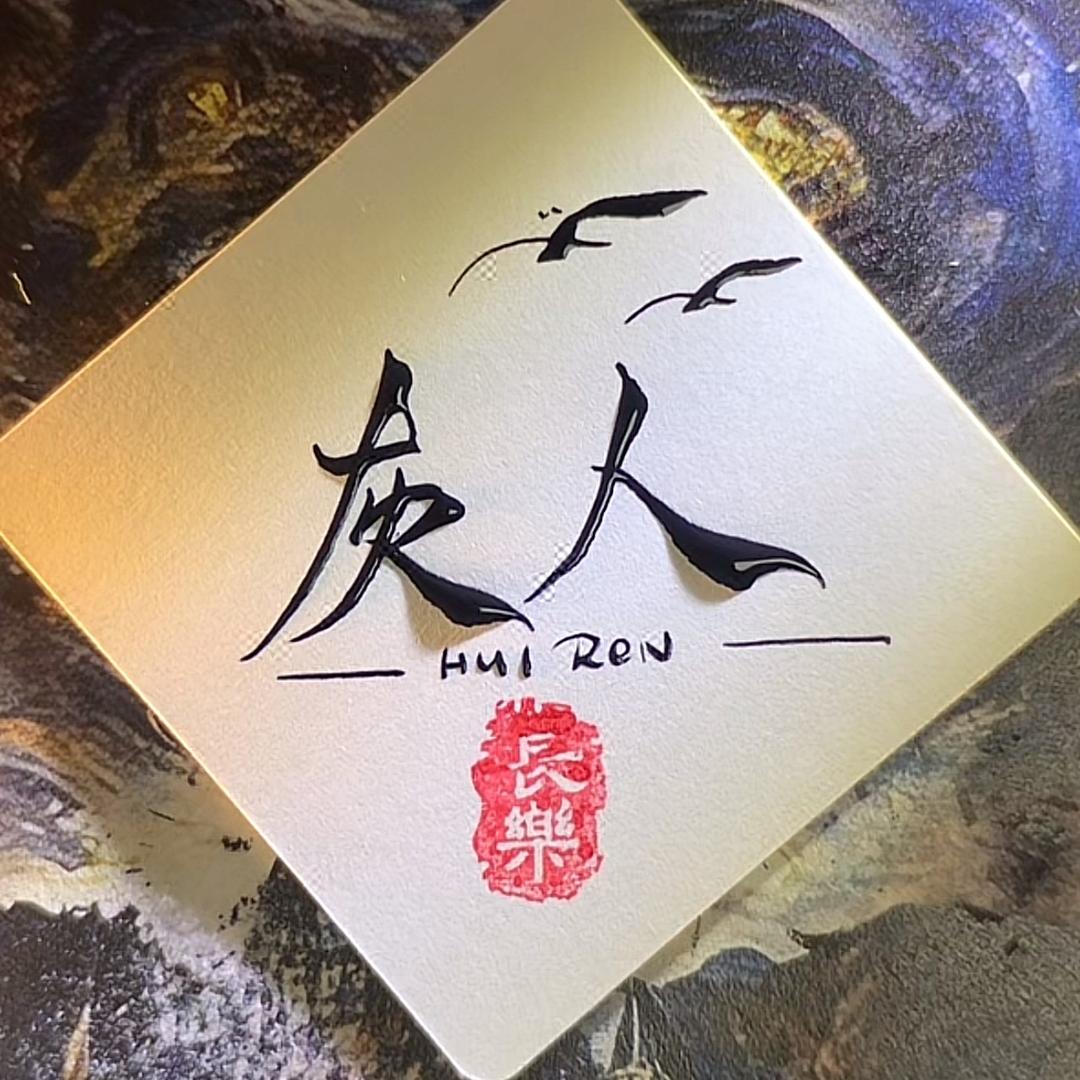 灰人
HUI REN
長樂